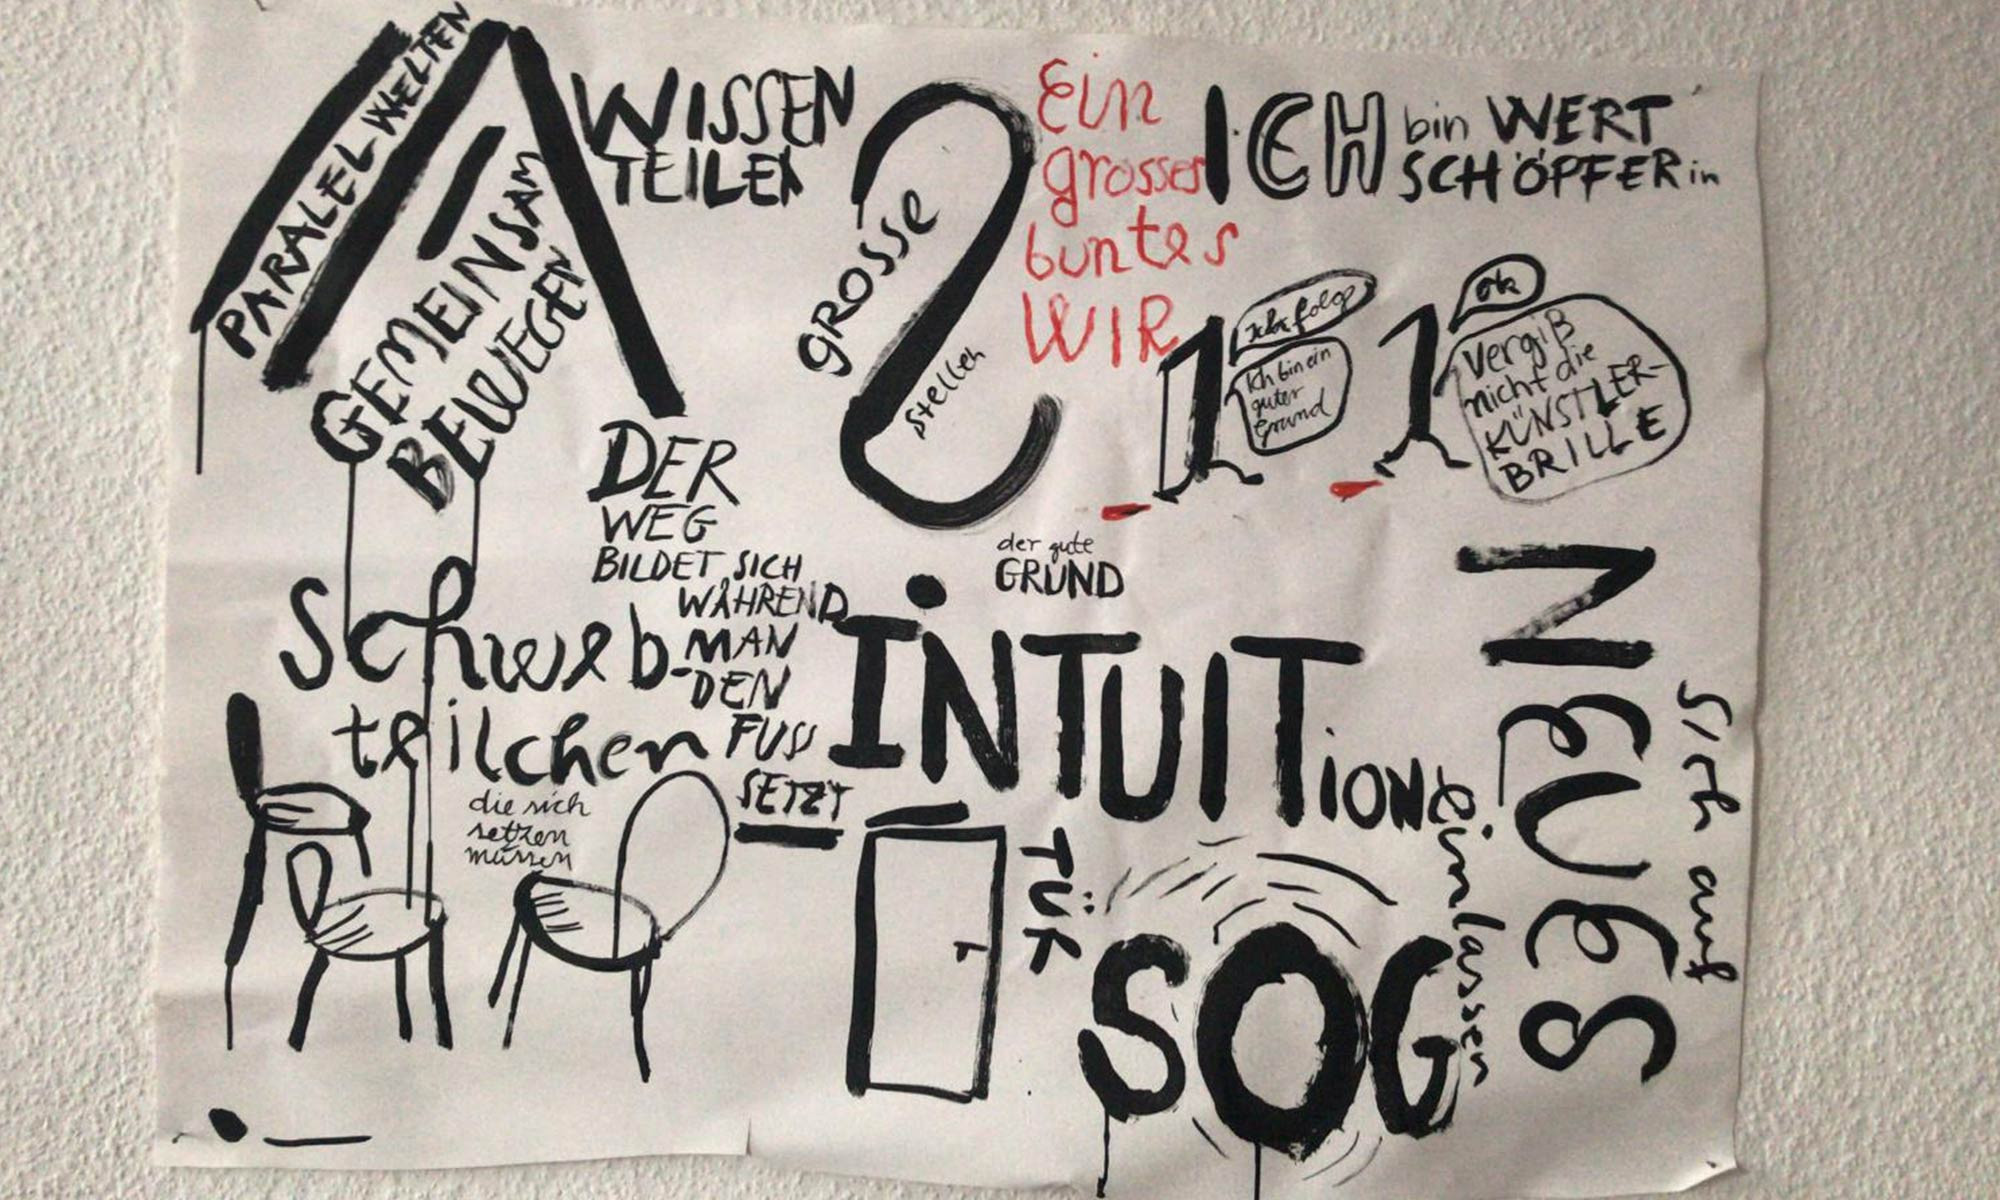 PARALEL-WELTEN
GEMEINSAM
BEWEGEN
WISSEN
TEILEN
GROSSE
stellen
Ein
grosses
buntes
WIR
ICH bin WERT
SCHÖPFERin
Ich bin ein
guter
Grund
ok
Vergiß
nicht die
KÜNSTLER-
BRILLE
DER
WEG
BILDET SICH
WÄHREND
MAN
DEN
FUSS
SETZT
der gute
GRUND
Schweb-
teilchen
die sich
setzen
müssen
INTUITION
TÜR
SOG
sich auf
NEUES
einlassen